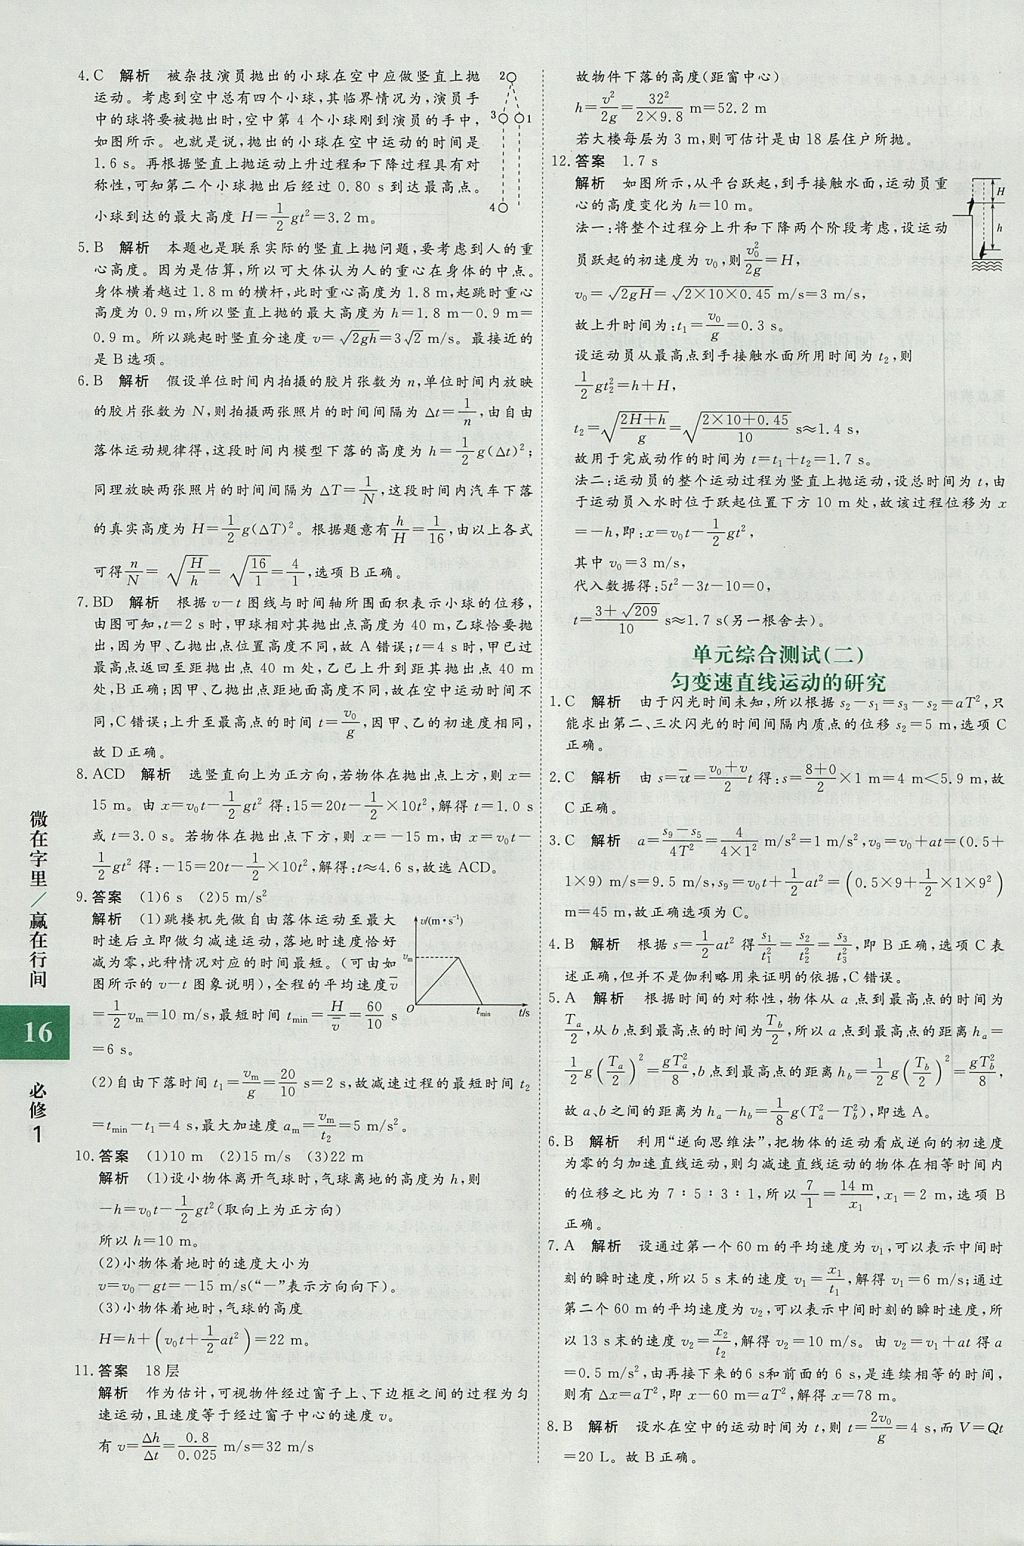 4. C 解析 被杂技演员抛出的小球在空中应做竖直上抛
运动。考虑到空中总有四个小球,其临界情况为,演员手
中的球将要被抛出时,空中第 4 个小球刚到演员的手中,
如图所示。也就是说,抛出的小球在空中运动的时间是
1.6 s。再根据竖直上抛运动上升过程和下降过程具有对
称性,可知第二个小球抛出后经过 0.80 s 到达最高点。
小球到达的最大高度 H=1/2 gt²=3.2 m。
2
3 1
4
5. B 解析 本题也是联系实际的竖直上抛问题,要考虑到人的重
心高度。因为是估算,所以可大体认为人的重心在身体的中点。
身体横着越过 1.8 m 的横杆,此时重心高度为 1.8 m,起跳时重心
高度为 0.9 m,所以竖直上抛的最大高度为 h=1.8 m−0.9 m=
0.9 m。所以跳起时竖直分速度 v=√(2gh)=3√2 m/s。最接近的
是 B 选项。
6. B 解析 假设单位时间内拍摄的胶片张数为 n,单位时间内放映
的胶片张数为 N,则拍摄两张照片的时间间隔为 Δt=1/n,由自由
落体运动规律得,这段时间内模型下落的高度为 h=1/2 g(Δt)²;
同理放映两张照片的时间间隔为 ΔT=1/N,这段时间内汽车下落
的真实高度为 H=1/2 g(ΔT)²。根据题意有 h/H=1/16,由以上各式
可得 n/N=√(H/h)=√(16/1)=4/1,选项 B 正确。
7. BD 解析 根据 v−t 图线与时间轴所围面积表示小球的位移,
由图可知,t=2 s 时,甲球相对其抛出点高度为 40 m,乙球恰要抛
出,因为甲、乙抛出点位置高度不同,故 A 错误;t=4 s 时,甲已过
最高点返回至距抛出点 40 m 处,乙已上升到距其抛出点 40 m
处,B 正确;因甲、乙抛出点距地面高度不同,故在空中运动时间不
同,C 错误;上升至最高点的时间 t=v₀/g,因甲、乙的初速度相同,
故 D 正确。
8. ACD 解析 选竖直向上为正方向,若物体在抛出点上方,则 x=
15 m。由 x=v₀t−1/2 gt² 得:15=20t−1/2×10t²,解得 t=1.0 s
或 t=3.0 s。若物体在抛出点下方,则 x=−15 m,由 x=v₀t−
1/2 gt² 得:−15=20t−1/2×10t²,解得:t≈4.6 s,故选 ACD。
9. 答案 (1)6 s (2)5 m/s²
解析 (1)跳楼机先做自由落体运动至最大
时速后立即做匀减速运动,落地时速度恰好
减为零,此种情况对应的时间最短。(可由如
图所示的 v−t 图象说明),全程的平均速度v̄
=1/2 vₘ=10 m/s,最短时间 tmin=H/v̄=60/10 s
=6 s。
v/(m·s⁻¹)
O tmin t/s
(2)自由下落时间 t₁=vₘ/g=20/10 s=2 s,故减速过程的最短时间 t₂
=tmin−t₁=4 s,最大加速度 aₘ=vₘ/t₂=5 m/s²。
10. 答案 (1)10 m (2)15 m/s (3)22 m
解析 (1)设小物体离开气球时,气球离地的高度为 h,则
−h=v₀t−1/2 gt²(取向上为正方向)
所以 h=10 m。
(2)小物体着地时的速度大小为
v=v₀−gt=−15 m/s(“−”表示方向向下)。
(3)小物体着地时,气球的高度
H=h+(v₀t+1/2 at²)=22 m。
11. 答案 18 层
解析 作为估计,可视物件经过窗子上、下边框之间的过程为匀
速运动,且速度等于经过窗子中心的速度 v。
有 v=Δh/Δt=0.8/0.025 m/s=32 m/s
故物件下落的高度(距窗中心)
h=v²/2g=32²/(2×9.8) m=52.2 m
若大楼每层为 3 m,则可估计是由 18 层住户所抛。
12. 答案 1.7 s
解析 如图所示,从平台跃起,到手接触水面,运动员重
心的高度变化为 h=10 m。
法一:将整个过程分上升和下降两个阶段考虑,设运动
员跃起的初速度为 v₀,则 v₀²/2g=H,
H
h
v₀=√(2gH)=√(2×10×0.45) m/s=3 m/s,
故上升时间为:t₁=v₀/g=0.3 s。
设运动员从最高点到手接触水面所用时间为 t₂,则
1/2 gt₂²=h+H,
t₂=√((2H+h)/g)=√((2×10+0.45)/10) s≈1.4 s,
故用于完成动作的时间为 t=t₁+t₂=1.7 s。
法二:运动员的整个运动过程为竖直上抛运动,设总时间为 t,由
于运动员入水时位于跃起位置下方 10 m 处,故该过程位移为 x
=−h,即:x=v₀t−1/2 gt²,
其中 v₀=3 m/s,
代入数据得:5t²−3t−10=0,
t=(3+√209)/10 s≈1.7 s(另一根舍去)。
单元综合测试(二)
匀变速直线运动的研究
1. C 解析 由于闪光时间未知,所以根据 s₂−s₁=s₃−s₂=aT²,只
能求出第二、三次闪光的时间间隔内质点的位移 s₂=5 m,选项 C
正确。
2. C 解析 由 s=v̄t=(v₀+v)/2 t 得:s=(8+0)/2×1 m=4 m<5.9 m,故
C 正确。
3. C 解析 a=(s₉−s₅)/4T²=4/(4×1²) m/s²=1 m/s²,v₉=v₀+at=(0.5+
1×9) m/s=9.5 m/s,s₉=v₀t+1/2 at²=(0.5×9+1/2×1×9²)
m=45 m,故正确选项为 C。
4. B 解析 根据 s=1/2 at² 得 s₁/t₁²=s₂/t₂²=s₃/t₃²,即 B 正确,选项 C 表
述正确,但并不是伽利略用来证明的依据,C 错误。
5. A 解析 根据时间的对称性,物体从 a 点到最高点的时间为
Tₐ/2,从 b 点到最高点的时间为 T_b/2,所以 a 点到最高点的距离 hₐ=
1/2 g(Tₐ/2)²=gTₐ²/8,b 点到最高点的距离 h_b=1/2 g(T_b/2)²=gT_b²/8,
故 a、b 点的距离为 hₐ−h_b=1/8 g(Tₐ²−T_b²),即选 A。
6. B 解析 利用“逆向思维法”,把物体的运动看成逆向的初速度
为零的匀加速直线运动,则匀减速直线运动的物体在相等时间内
的位移之比为 7∶5∶3∶1,所以 7/1=14 m/x₁,x₁=2 m,选项 B
正确。
7. A 解析 设通过第一个 60 m 的平均速度为 v₁,可以表示中间时
刻的瞬时速度,所以 5 s 末的速度 v₁=x₁/t₁,解得 v₁=6 m/s;通过
第二个 60 m 的平均速度为 v₂,可以表示中间时刻的瞬时速度,所
以 13 s 末的速度 v₂=x₂/t₂,解得 v₂=10 m/s。由 v₂=v₁+at 得 a
=0.5 m/s²,由再接下来的6 s和前面的 6 s,是连续相等的时间,
则有 Δx=aT²,即 x−60 m=aT²,解得 x=78 m。
8. B 解析 设水在空中的运动时间为 t,则 t=2v₀/g=4 s,而 V=Qt
=20 L。故 B 正确。
微在字里/赢在行间
16
必修 1